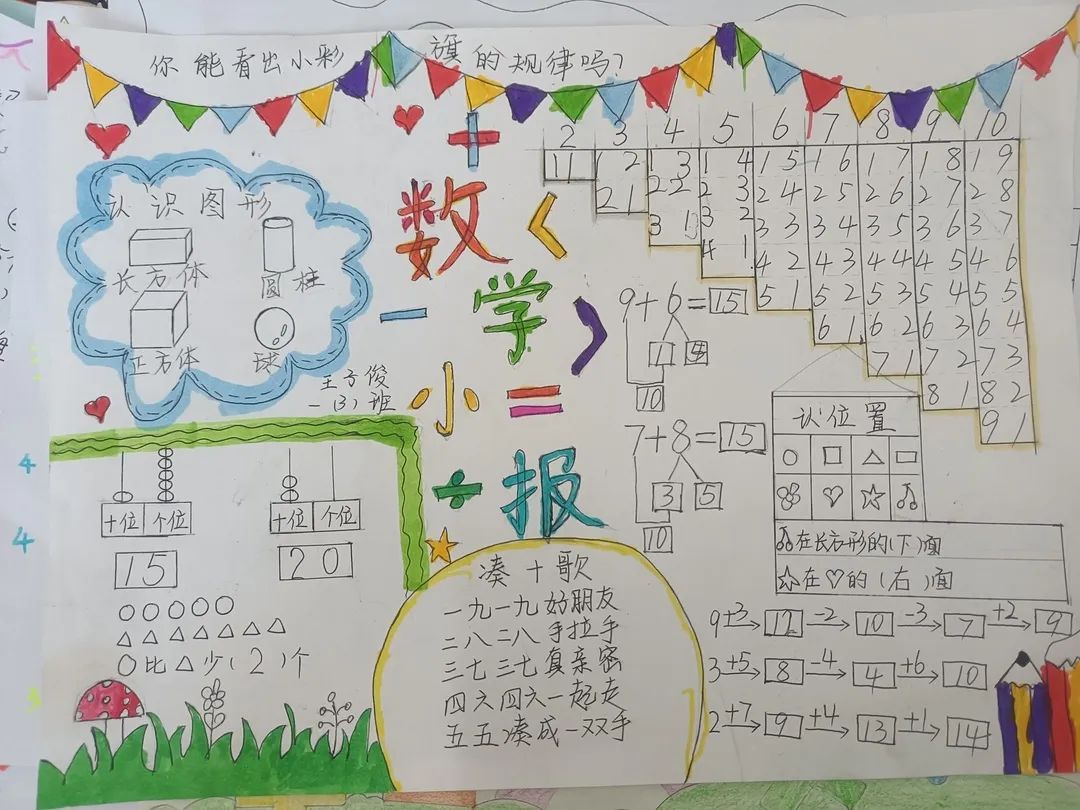 你能看出小彩旗的规律吗?
认识图形
长方体
圆柱
正方体
球
王子俊
一(3)班
+
数
<
-
学
>
小
=
÷
报
2 3 4 5 6 7 8 9 10
11 12 13 14 15 16 17 18 19
21 22 23 24 25 26 27 28
3 1 32 33 34 35 36 37
41 42 43 44 45 46
51 52 53 54 55
61 62 63 64
71 72 73
81 82
91
9+6=15
1
10
7+8=15
3 5
10
认位置
在长方形的(下)面
在♡的(右)面
十位 个位
15
十位 个位
20
○○○○○
△△△△△△△
○比△少(2)个
凑十歌
一九一九好朋友
二八二八手拉手
三七三七真亲密
四六四六一起走
五五凑成一双手
9 +3→ 12 -2→ 10 -3→ 7 +2→ 9
3 +5→ 8 -4→ 4 +6→ 10
2 +7→ 9 +4→ 13 +1→ 14